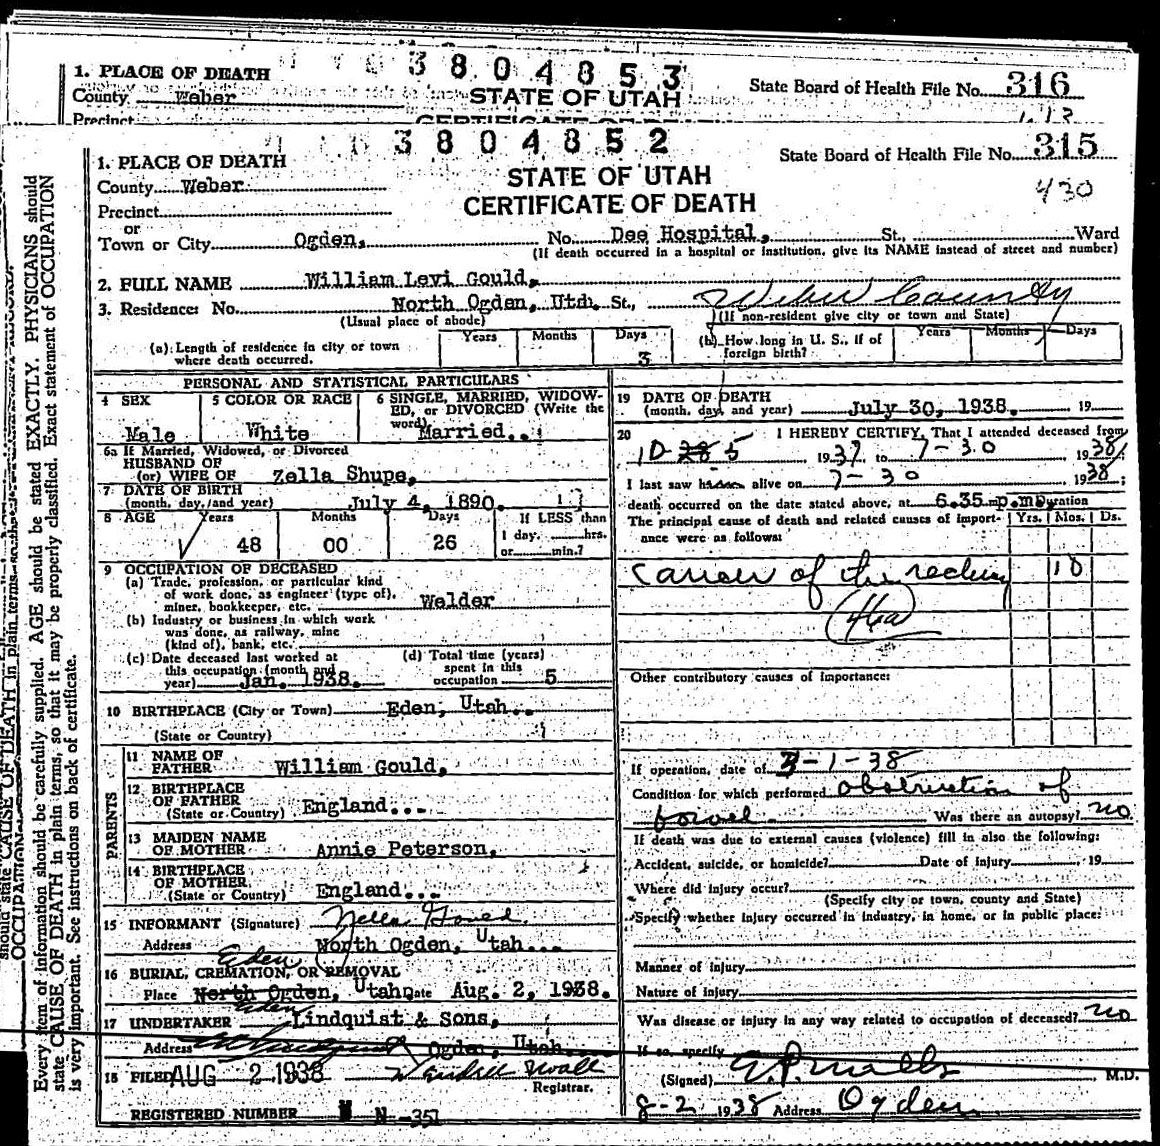 3804853
1. PLACE OF DEATH
State Board of Health File No. 316
County Weber
STATE OF UTAH
Precinct
CERTIFICATE OF DEATH
3804852
1. PLACE OF DEATH
State Board of Health File No. 315
County Weber
STATE OF UTAH
430
Precinct
CERTIFICATE OF DEATH
or
Town or City Ogden, No. Dee Hospital, St., Ward
(If death occurred in a hospital or institution, give its NAME instead of street and number)
2. FULL NAME William Levi Gould,
3. Residence: No. North Ogden, Utah. St., Weber County
(Usual place of abode) (If non-resident give city or town and State)
(a) Length of residence in city or town where death occurred. Years Months Days 3
(b) How long in U. S., if of foreign birth? Years Months Days
PERSONAL AND STATISTICAL PARTICULARS
4 SEX Male
5 COLOR OR RACE White
6 SINGLE, MARRIED, WIDOWED, or DIVORCED (Write the word) Married..
6a If Married, Widowed, or Divorced
HUSBAND OF
(or) WIFE OF Zella Shupe,
7 DATE OF BIRTH
(month, day, and year) July 4, 1890
8 AGE Years 48 Months 00 Days 26 If LESS than 1 day, hrs. or min.?
9 OCCUPATION OF DECEASED
(a) Trade, profession, or particular kind
of work done, as engineer (type of),
miner, bookkeeper, etc. Welder
(b) Industry or business in which work
was done, as railway, mine
(kind of), bank, etc.
(c) Date deceased last worked at
this occupation (month and
year) Jan. 1938.
(d) Total time (years)
spent in this
occupation 5
10 BIRTHPLACE (City or Town) Eden, Utah..
(State or Country)
PARENTS
11 NAME OF
FATHER William Gould,
12 BIRTHPLACE
OF FATHER
(State or Country) England...
13 MAIDEN NAME
OF MOTHER Annie Peterson,
14 BIRTHPLACE
OF MOTHER
(State or Country) England...
15 INFORMANT (Signature) Zella Gould
Address North Ogden, Utah...
Eden
16 BURIAL, CREMATION, OR REMOVAL
Place North Ogden, Utah Date Aug. 2, 1938.
Eden
17 UNDERTAKER Lindquist & Sons,
Address Ogden, Utah.
18 FILED AUG 2 1938
Registrar.
REGISTERED NUMBER N-351
19 DATE OF DEATH
(month, day, and year) July 30, 1938. 19
20 I HEREBY CERTIFY, That I attended deceased from
10-28 5 1937 to 7-30 1938
I last saw h alive on 7-30 1938;
death occurred on the date stated above, at 6.35 p.m. Duration
The principal cause of death and related causes of importance were as follows: Yrs. Mos. Ds.
cancer of the rectum 10
46a
Other contributory causes of importance:
If operation, date of 3-1-38
Condition for which performed obstruction of
bowel. Was there an autopsy? no
If death was due to external causes (violence) fill in also the following:
Accident, suicide, or homicide? Date of injury , 19
Where did injury occur?
(Specify city or town, county and State)
Specify whether injury occurred in industry, in home, or in public place:
Manner of injury
Nature of injury
Was disease or injury in any way related to occupation of deceased? no
If so, specify
(Signed) M.D.
8-2 1938 Address Ogden
Every item of information should be carefully supplied. AGE should be stated EXACTLY. PHYSICIANS should
state CAUSE OF DEATH in plain terms, so that it may be properly classified. Exact statement of OCCUPATION
is very important. See instructions on back of certificate.